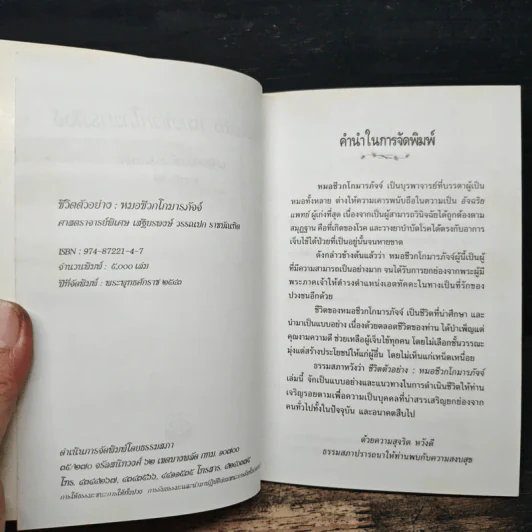 ชีวิตตัวอย่าง : หมอชีวกโกมารภัจจ์
ศาสตราจารย์พิเศษ เสฐียรพงษ์ วรรณปก ราชบัณฑิต
ISBN : 974-87221-4-7
จำนวนพิมพ์ : ๕,๐๐๐ เล่ม
ปีที่จัดพิมพ์ : พระพุทธศักราช
ดำเนินการจัดพิมพ์โดยธรรมสภา
๓๕/๒๗๐ จรัลสนิทวงศ์ ๖๒ เขตบางพลัด กทม. ๑๐๗๐๐
โทร. โทรสาร.
คำนำในการจัดพิมพ์
หมอชีวกโกมารภัจจ์ เป็นบุรพาจารย์ที่บรรดาผู้เป็น
หมอทั้งหลาย ต่างให้ความเคารพนับถือในความเป็น อัจฉริย
แพทย์ ผู้เก่งที่สุด เนื่องจากเป็นผู้สามารถวินิจฉัยได้ถูกต้องตาม
สมุฏฐาน คือที่เกิดของโรค และวางยาบำบัดโรคได้ตรงกับอาการ
เจ็บไข้ได้ป่วยที่เป็นอยู่นั้นจนหายขาด
ดังกล่าวข้างต้นแล้วว่า หมอชีวกโกมารภัจจ์ผู้นี้เป็นผู้
ที่มีความสามารถเป็นอย่างมาก จนได้รับการยกย่องจากพระผู้มี
พระภาคเจ้าให้ดำรงตำแหน่งเอตทัคคะในทางเป็นที่รักของ
ปวงชนอีกด้วย
ชีวิตของหมอชีวกโกมารภัจจ์ เป็นชีวิตที่น่าศึกษา และ
นำมาเป็นแบบอย่าง เนื่องด้วยตลอดชีวิตของท่าน ได้บำเพ็ญแต่
คุณงามความดี ช่วยเหลือผู้เจ็บไข้ทุกคน โดยไม่เลือกชั้นวรรณะ
มุ่งแต่สร้างประโยชน์ให้แก่ผู้อื่น โดยไม่เห็นแก่เหน็ดเหนื่อย
ธรรมสภาหวังว่า ชีวิตตัวอย่าง : หมอชีวกโกมารภัจจ์
เล่มนี้ จักเป็นแบบอย่างและแนวทางในการดำเนินชีวิตให้ท่าน
เจริญรอยตามเพื่อความเป็นบุคคลที่น่าสรรเสริญยกย่องจาก
คนทั่วไปทั้งในปัจจุบัน และอนาคตสืบไป
ด้วยความสุจริต หวังดี
ธรรมสภาปรารถนาให้ท่านพบกับความสงบสุข